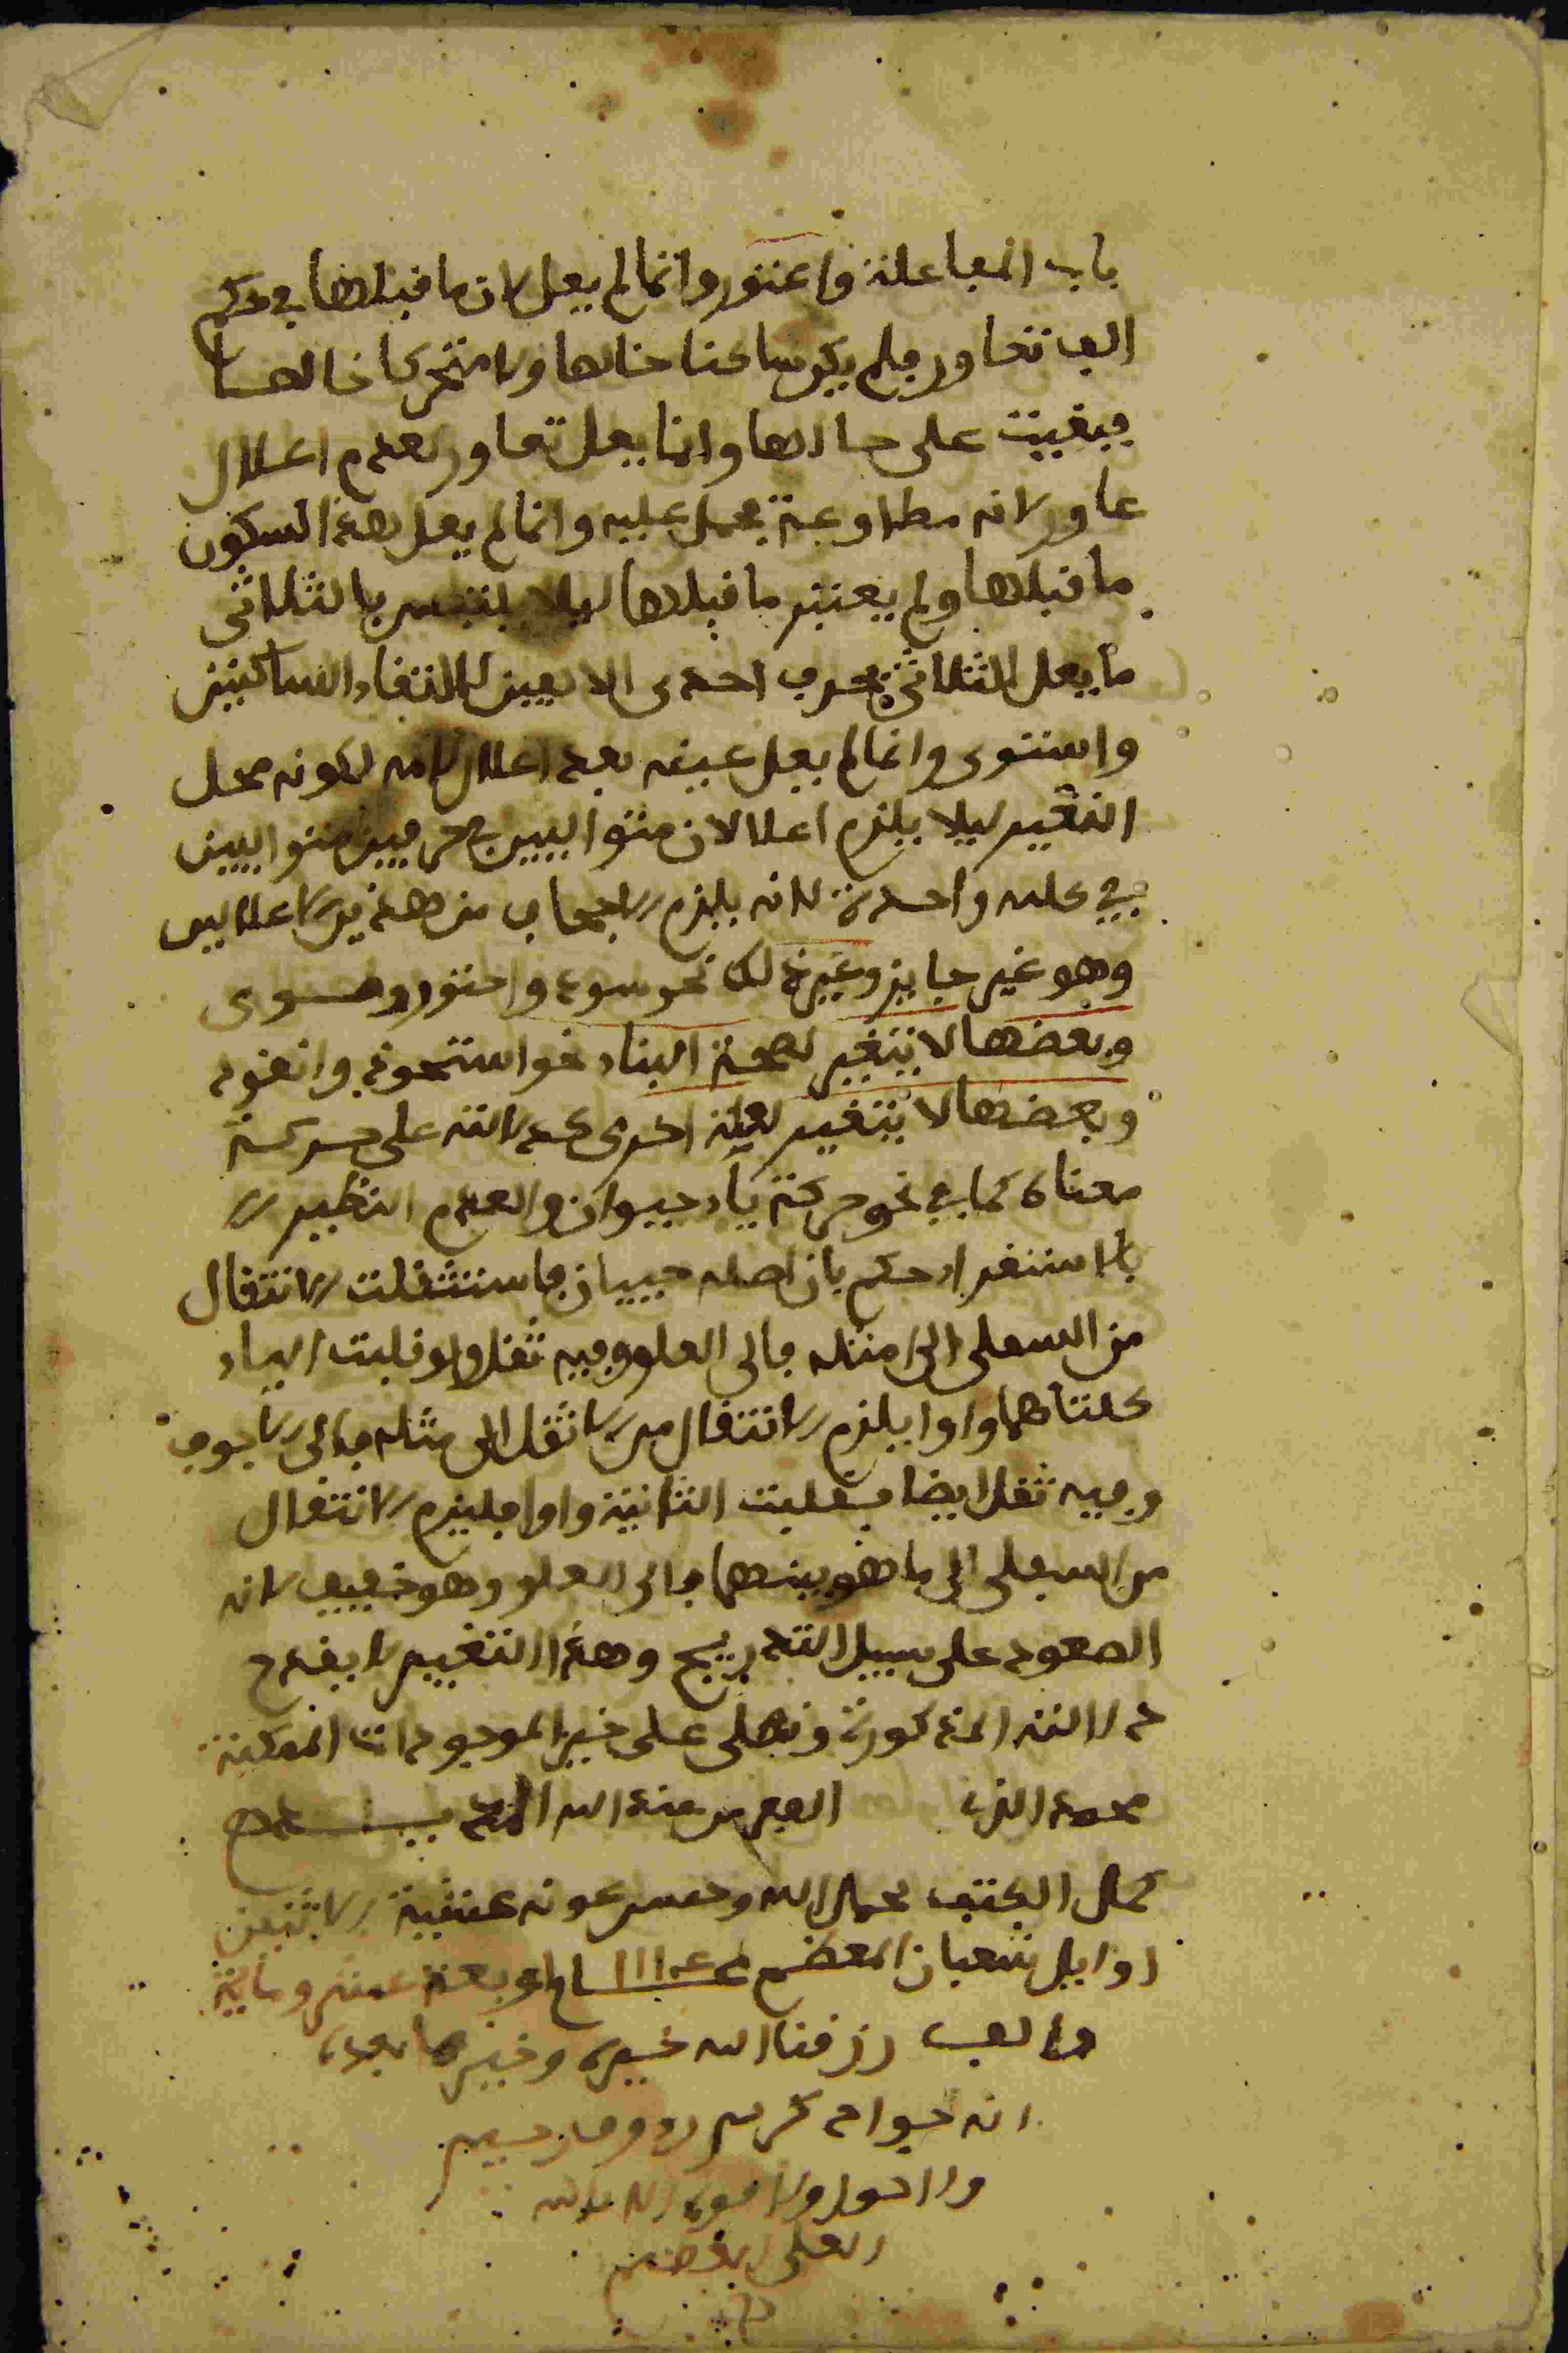 باب المفاعلة واعتور وانما لم يعل لان ما قبلها في حكم
الف تعاور فلم يكن ساكنا خالصا ولا متحركا خالصا
فبقيت على حالها وانما يعل تعاور لعدم اعلال
عاور لانه مطاوعة فحمل عليه وانما لم يعل هذا السكون
ما قبلها ولم يعتبر ما قبلها ليلا يلتبس بالثلاثي
ما يعل الثلاثي بحذف احدى الالفين لالتقاء الساكنين
واستوى وانما لم يعل عينه بعد اعلال لامه لكونه محل
التغيير ليلا يلزم اعلالان متواليين في حرفين متواليين
في كلمة واحدة لانه يلزم الاجحاف من هذين الاعلالين
وهو غير جايز وغير ذلك نحو سود واعتور وهوى
وبعضها لا يتغير لصحة البناء نحو استحوذ وانقود
وبعضها لا يتغير لعلة اخرى كدلالته على حركة
معناه كما في نحو حركة ياء حيوان ولعدم النظير
بالاستقراء حكم بان اصله حييان فاستثقلت الانتقال
من السفلى الى مثله فالى العلو وفيه ثقل ولو قلبت الياء
كلتاهما واوا يلزم الانتقال من الاثقل الى مثله فالى الاجوف
وفيه ثقل ايضا فقلبت الثانية واوا فليزم الانتقال
من السفلى الى ما هو بينهما فالى العلو وهو خفيف لانه
الصعود على سبيل التدريج وهذا التغيير لا يقدح
دلالته المذكورة ونصلى على خير الموجودات الممكنة
محمد الذى العجز من عند الله
كمل الكتب بحمد الله وحسن عونه عشية الاثنين
اوايل شعبان المعظم عام ١١١٤ اربعة عشر وماية
والف رزقنا الله خيره وخير ما بعده
انه جواد كريم رءوف رحيم
ولا حول ولا قوة الا بالله
العلى العظيم